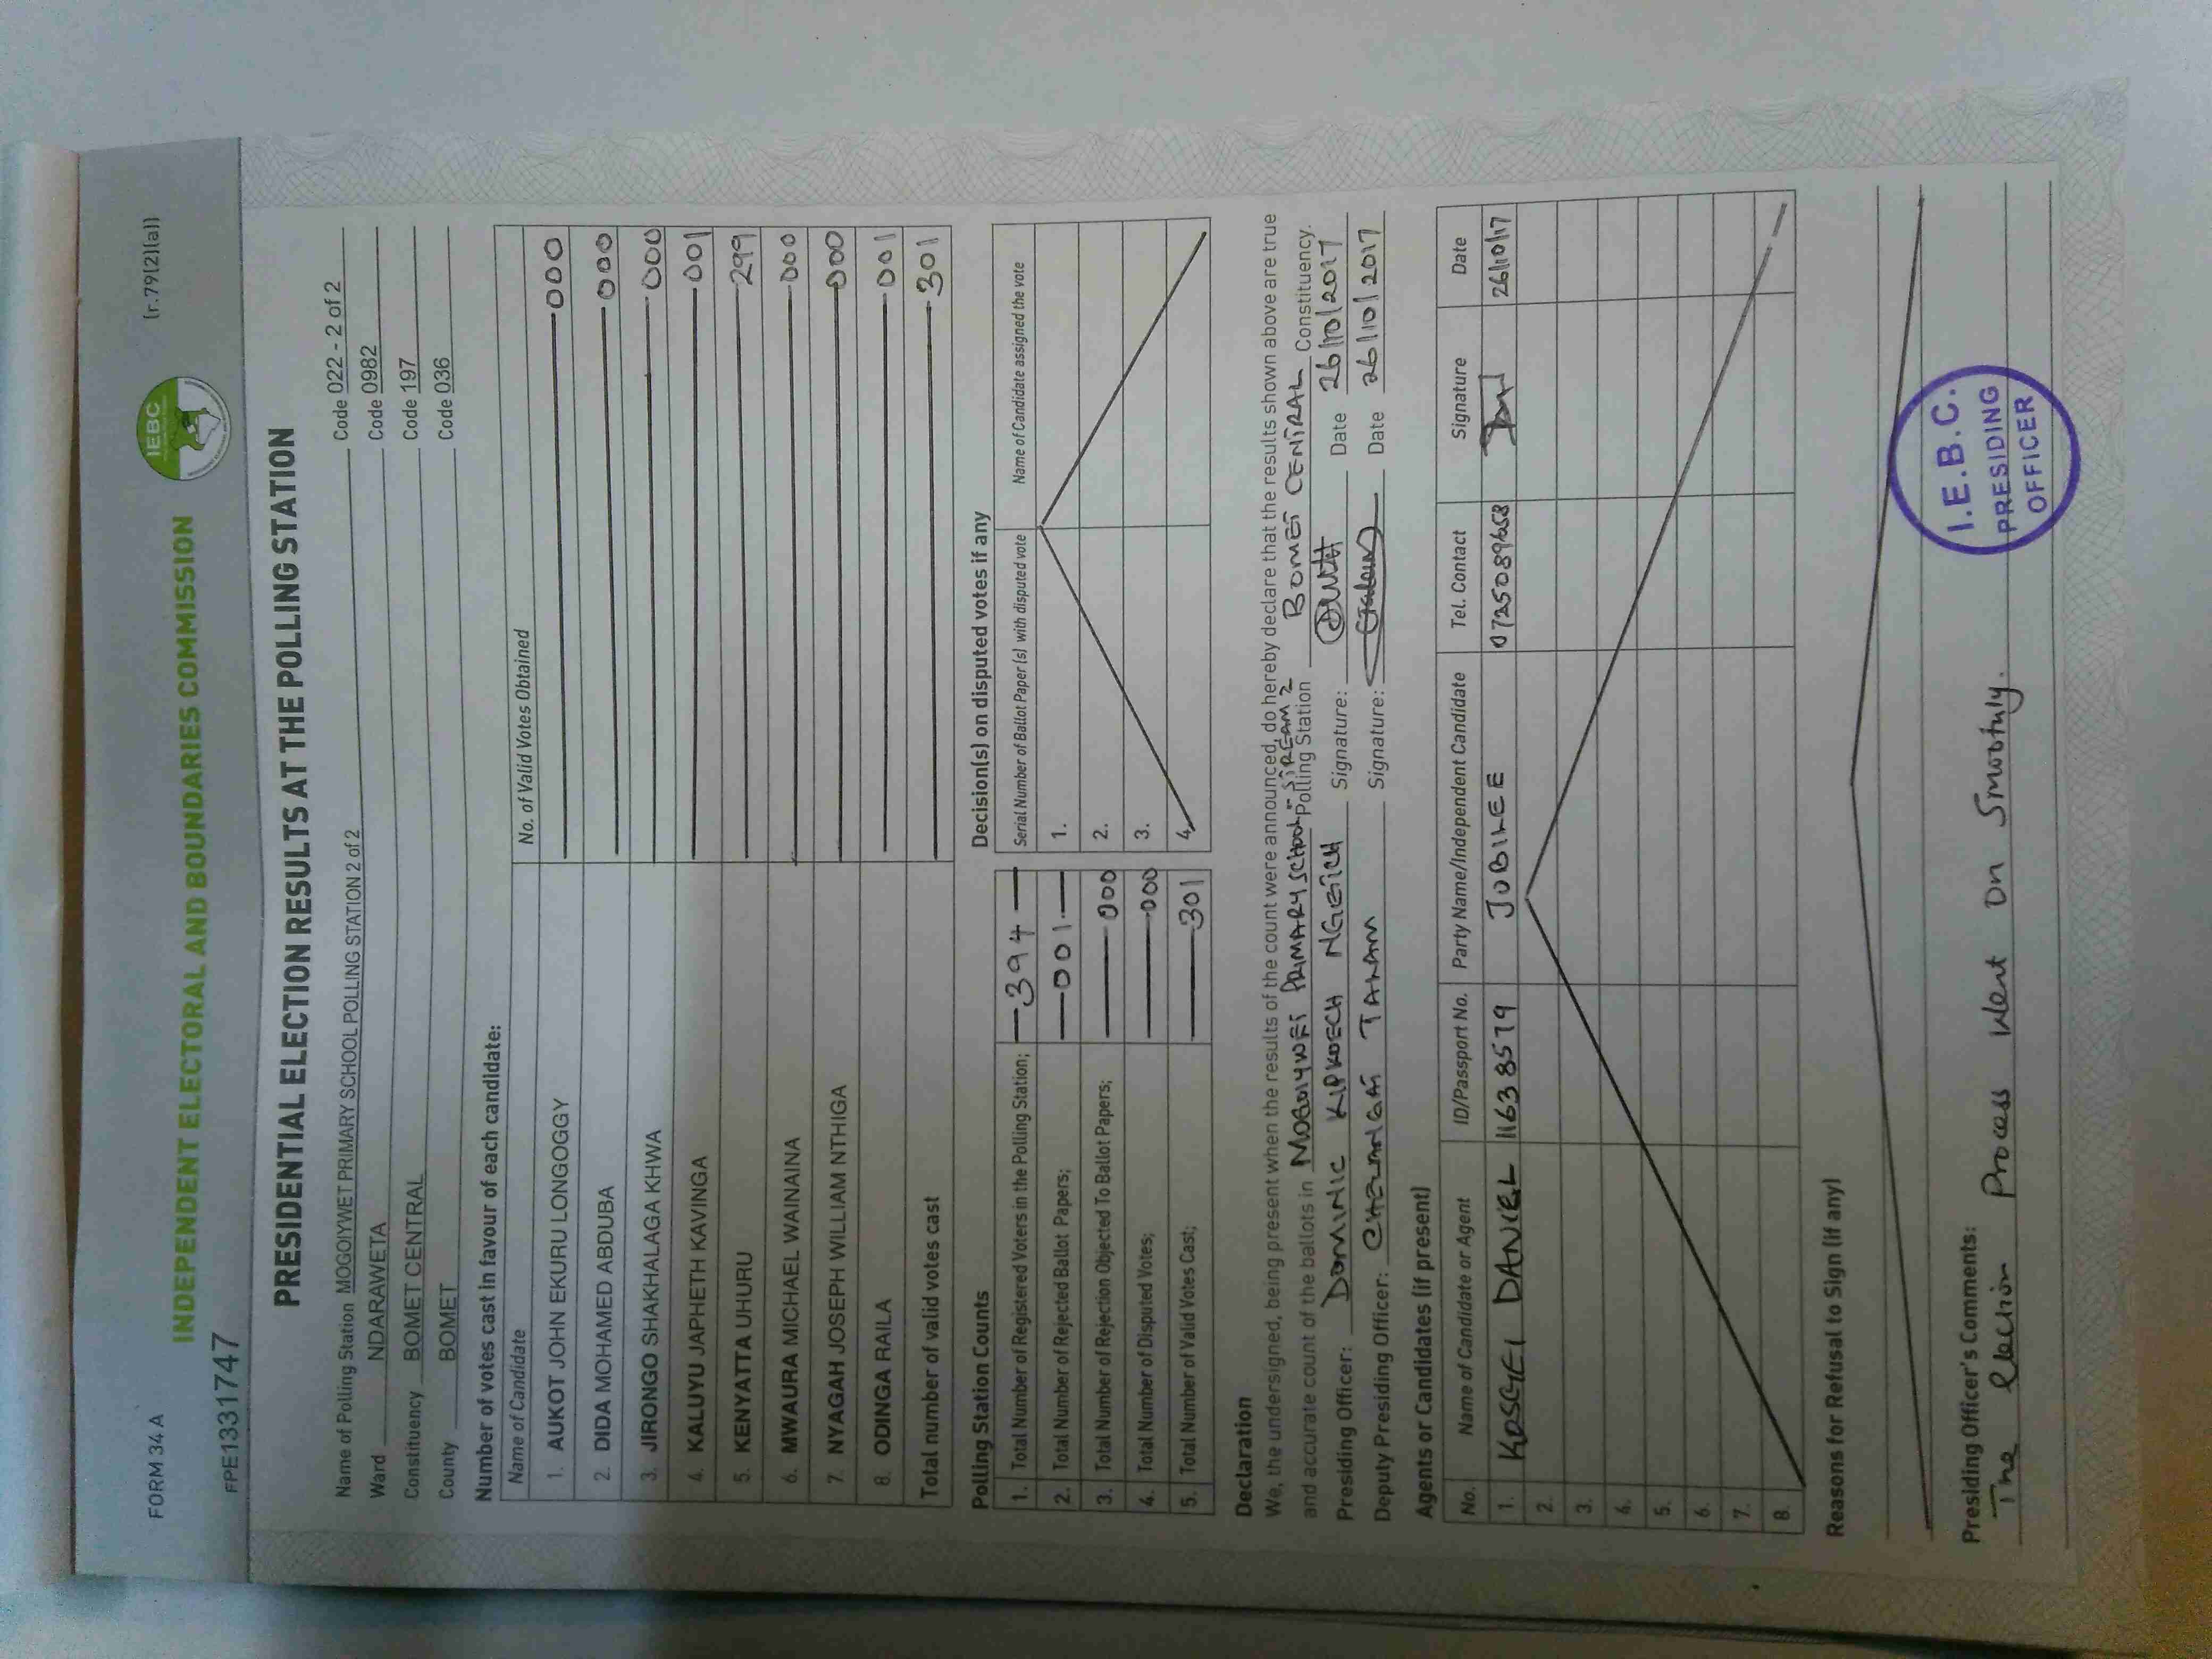 FORM 34 A
(r.79(2)(a))
IEBC
INDEPENDENT ELECTORAL AND BOUNDARIES COMMISSION
FPE1331747
PRESIDENTIAL ELECTION RESULTS AT THE POLLING STATION
Name of Polling Station MOGOIYWET PRIMARY SCHOOL POLLING STATION 2 of 2 Code 022 - 2 of 2
Ward NDARAWETA Code 0982
Constituency BOMET CENTRAL Code 197
County BOMET Code 036
Number of votes cast in favour of each candidate:
Name of Candidate No. of Valid Votes Obtained
1. AUKOT JOHN EKURU LONGOGGY 000
2. DIDA MOHAMED ABDUBA 000
3. JIRONGO SHAKHALAGA KHWA 000
4. KALUYU JAPHETH KAVINGA 001
5. KENYATTA UHURU 299
6. MWAURA MICHAEL WAINAINA 000
7. NYAGAH JOSEPH WILLIAM NTHIGA 000
8. ODINGA RAILA 001
Total number of valid votes cast 301
Polling Station Counts
1. Total Number of Registered Voters in the Polling Station; 394
2. Total Number of Rejected Ballot Papers; 001
3. Total Number of Rejection Objected To Ballot Papers; 000
4. Total Number of Disputed Votes; 000
5. Total Number of Valid Votes Cast; 301
Decision(s) on disputed votes if any
Serial Number of Ballot Paper(s) with disputed vote Name of Candidate assigned the vote
1.
2.
3.
4.
Declaration
We, the undersigned, being present when the results of the count were announced, do hereby declare that the results shown above are true
and accurate count of the ballots in MOGOIYWET PRIMARY SCHOOL - STREAM 2 Polling Station BOMET CENTRAL Constituency.
Presiding Officer: DOMINIC KIPKOECH NGETICH Signature: Date 26/10/2017
Deputy Presiding Officer: Signature: Date 26/10/2017
Agents or Candidates (if present)
No. Name of Candidate or Agent ID/Passport No. Party Name/Independent Candidate Tel. Contact Signature Date
1. KOSGEI DANIEL 11638579 JUBILEE 26/10/17
2.
3.
4.
5.
6.
7.
8.
Reasons for Refusal to Sign (if any)
Presiding Officer's Comments:
The Election Process Went On Smoothly.
I.E.B.C.
PRESIDING
OFFICER